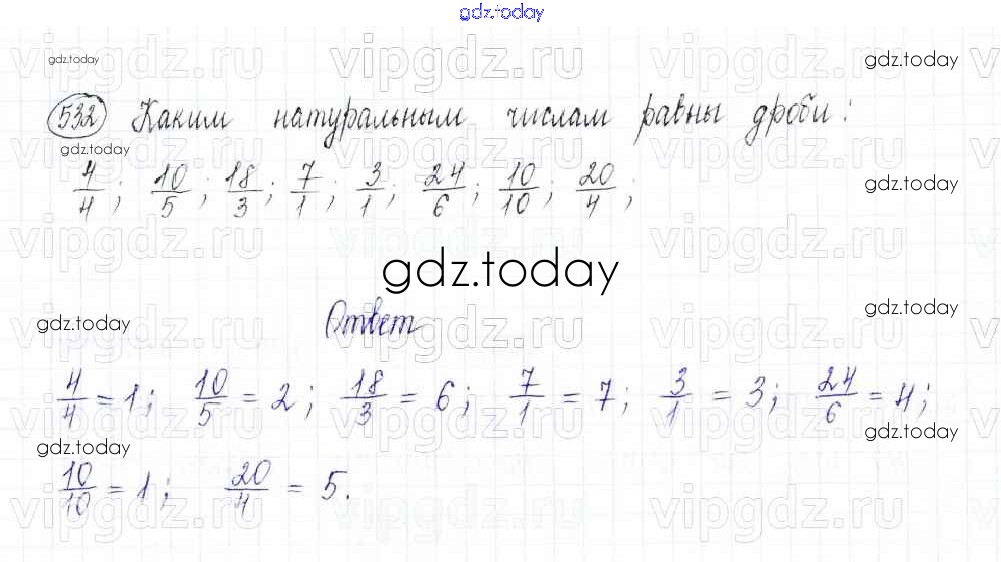 gdz.today
vipgdz.ru vipgdz.ru vipgdz.ru
gdz.today gdz.today
532 Каким натуральным числам равны дроби:
gdz.today
4/4; 10/5; 18/3; 7/1; 3/1; 24/6; 10/10; 20/4;
gdz.today
vipgdz.ru vipgdz.ru vipgdz.ru
gdz.today
gdz.today
gdz.today Ответ
vipgdz.ru vipgdz.ru vipgdz.ru
4/4 = 1; 10/5 = 2; 18/3 = 6; 7/1 = 7; 3/1 = 3; 24/6 = 4;
gdz.today gdz.today
10/10 = 1; 20/4 = 5.
vipgdz.ru vipgdz.ru vipgdz.ru